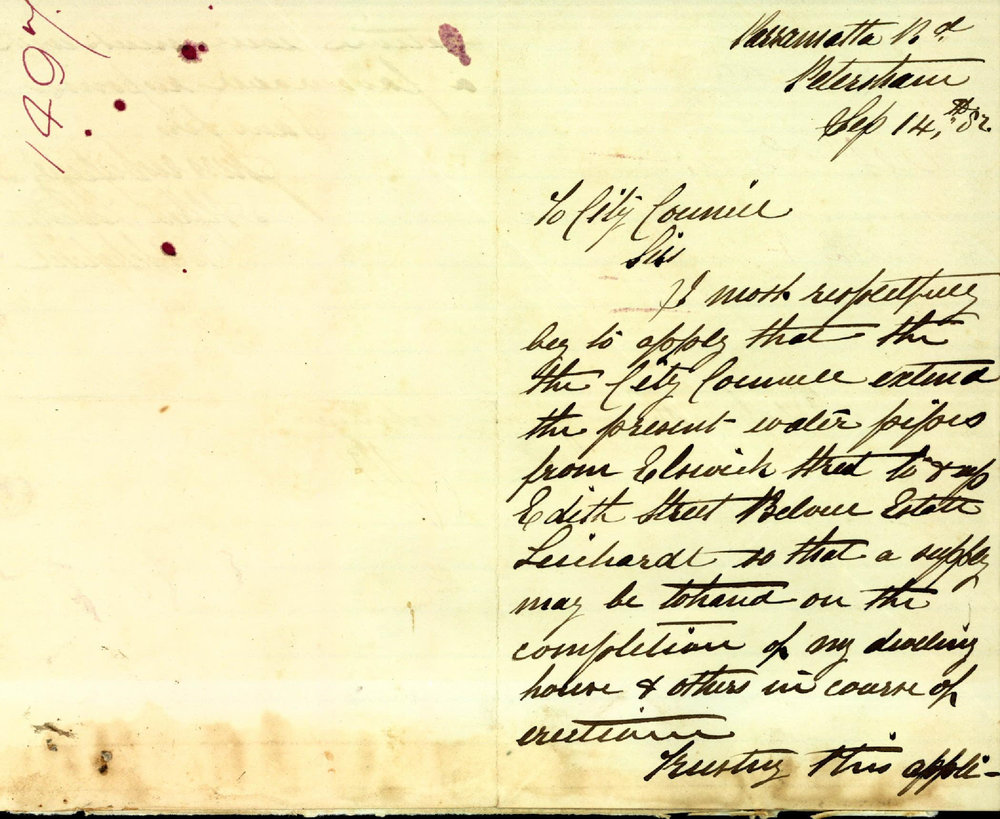 1497
Parramatta Rd
Petersham
Sep 14th, 82
To City Council
Sir
I most respectfully
beg to apply that the
the City Council extend
the present water pipes
from Elswick Street to & up
Edith Street Belvue Estate
Leichardt so that a supply
may be tohand on the
completion of my dweling
house & others in course of
erection
Trusting this appli-